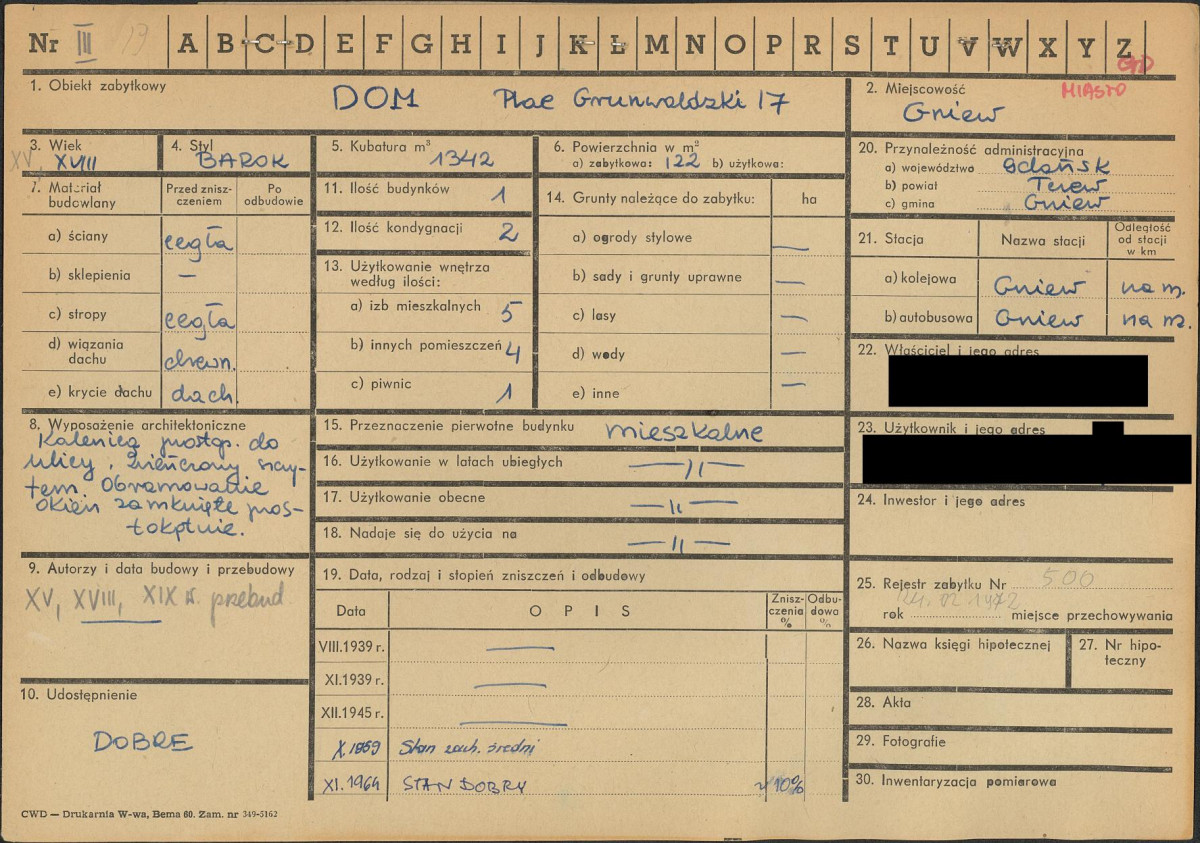 Nr III 13 A B C D E F G H I J K L M N O P R S T U V W X Y Z
1. Obiekt zabytkowy
DOM Plac Grunwaldzki 17
2. Miejscowość
MIASTO
Gniew
3. Wiek
XV, XVIII
4. Styl
BAROK
5. Kubatura m³
1342
6. Powierzchnia w m²
a) zabytkowa: 122 b) użytkowa:
7. Materiał budowlany
Przed zniszczeniem
Po odbudowie
a) ściany cegła
b) sklepienia —
c) stropy cegła
d) wiązania dachu drewn.
e) krycie dachu dach.
11. Ilość budynków 1
12. Ilość kondygnacji 2
13. Użytkowanie wnętrza
według ilości:
a) izb mieszkalnych 5
b) innych pomieszczeń 4
c) piwnic 1
14. Grunty należące do zabytku: ha
a) ogrody stylowe —
b) sady i grunty uprawne —
c) lasy —
d) wody —
e) inne —
20. Przynależność administracyjna
a) województwo Gdańsk
b) powiat Tczew
c) gmina Gniew
21. Stacja
Nazwa stacji
Odległość
od stacji
w km
a) kolejowa Gniew na m.
b) autobusowa Gniew na m.
22. Właściciel i jego adres
23. Użytkownik i jego adres
24. Inwestor i jego adres
8. Wyposażenie architektoniczne
Kalenicą prostop. do
ulicy, zwieńczony szczy-
tem. Obramowanie
okien zamknięte pros-
tokątnie.
9. Autorzy i data budowy i przebudowy
XV, XVIII, XIX w. przebud
10. Udostępnienie
DOBRE
15. Przeznaczenie pierwotne budynku mieszkalne
16. Użytkowanie w latach ubiegłych —〃—
17. Użytkowanie obecne —〃—
18. Nadaje się do użycia na —〃—
19. Data, rodzaj i stopień zniszczeń i odbudowy
Data
OPIS
Zniszczenia %
Odbudowa %
VIII.1939 r. —
XI.1939 r. —
XII.1945 r. —
X 1959 Stan zach. średni
XI.1964 STAN DOBRY ~10%
25. Rejestr zabytku Nr 500
rok 24.02 1972 miejsce przechowywania
26. Nazwa księgi hipotecznej
27. Nr hipoteczny
28. Akta
29. Fotografie
30. Inwentaryzacja pomiarowa
CWD — Drukarnia W-wa, Bema 60. Zam. nr 349-5162